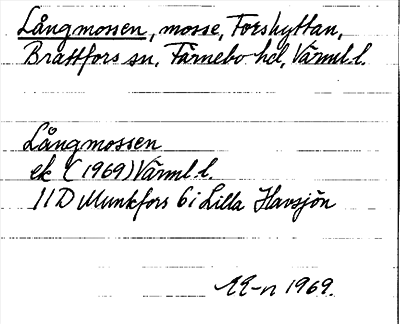 Långmossen, mosse, Torshyttan,
Brattfors sn, Färnebo hd, Värml. l.
Långmossen
ek (1969) Värml. l.
11D Munkfors 6i Lilla Havsjön
1969.